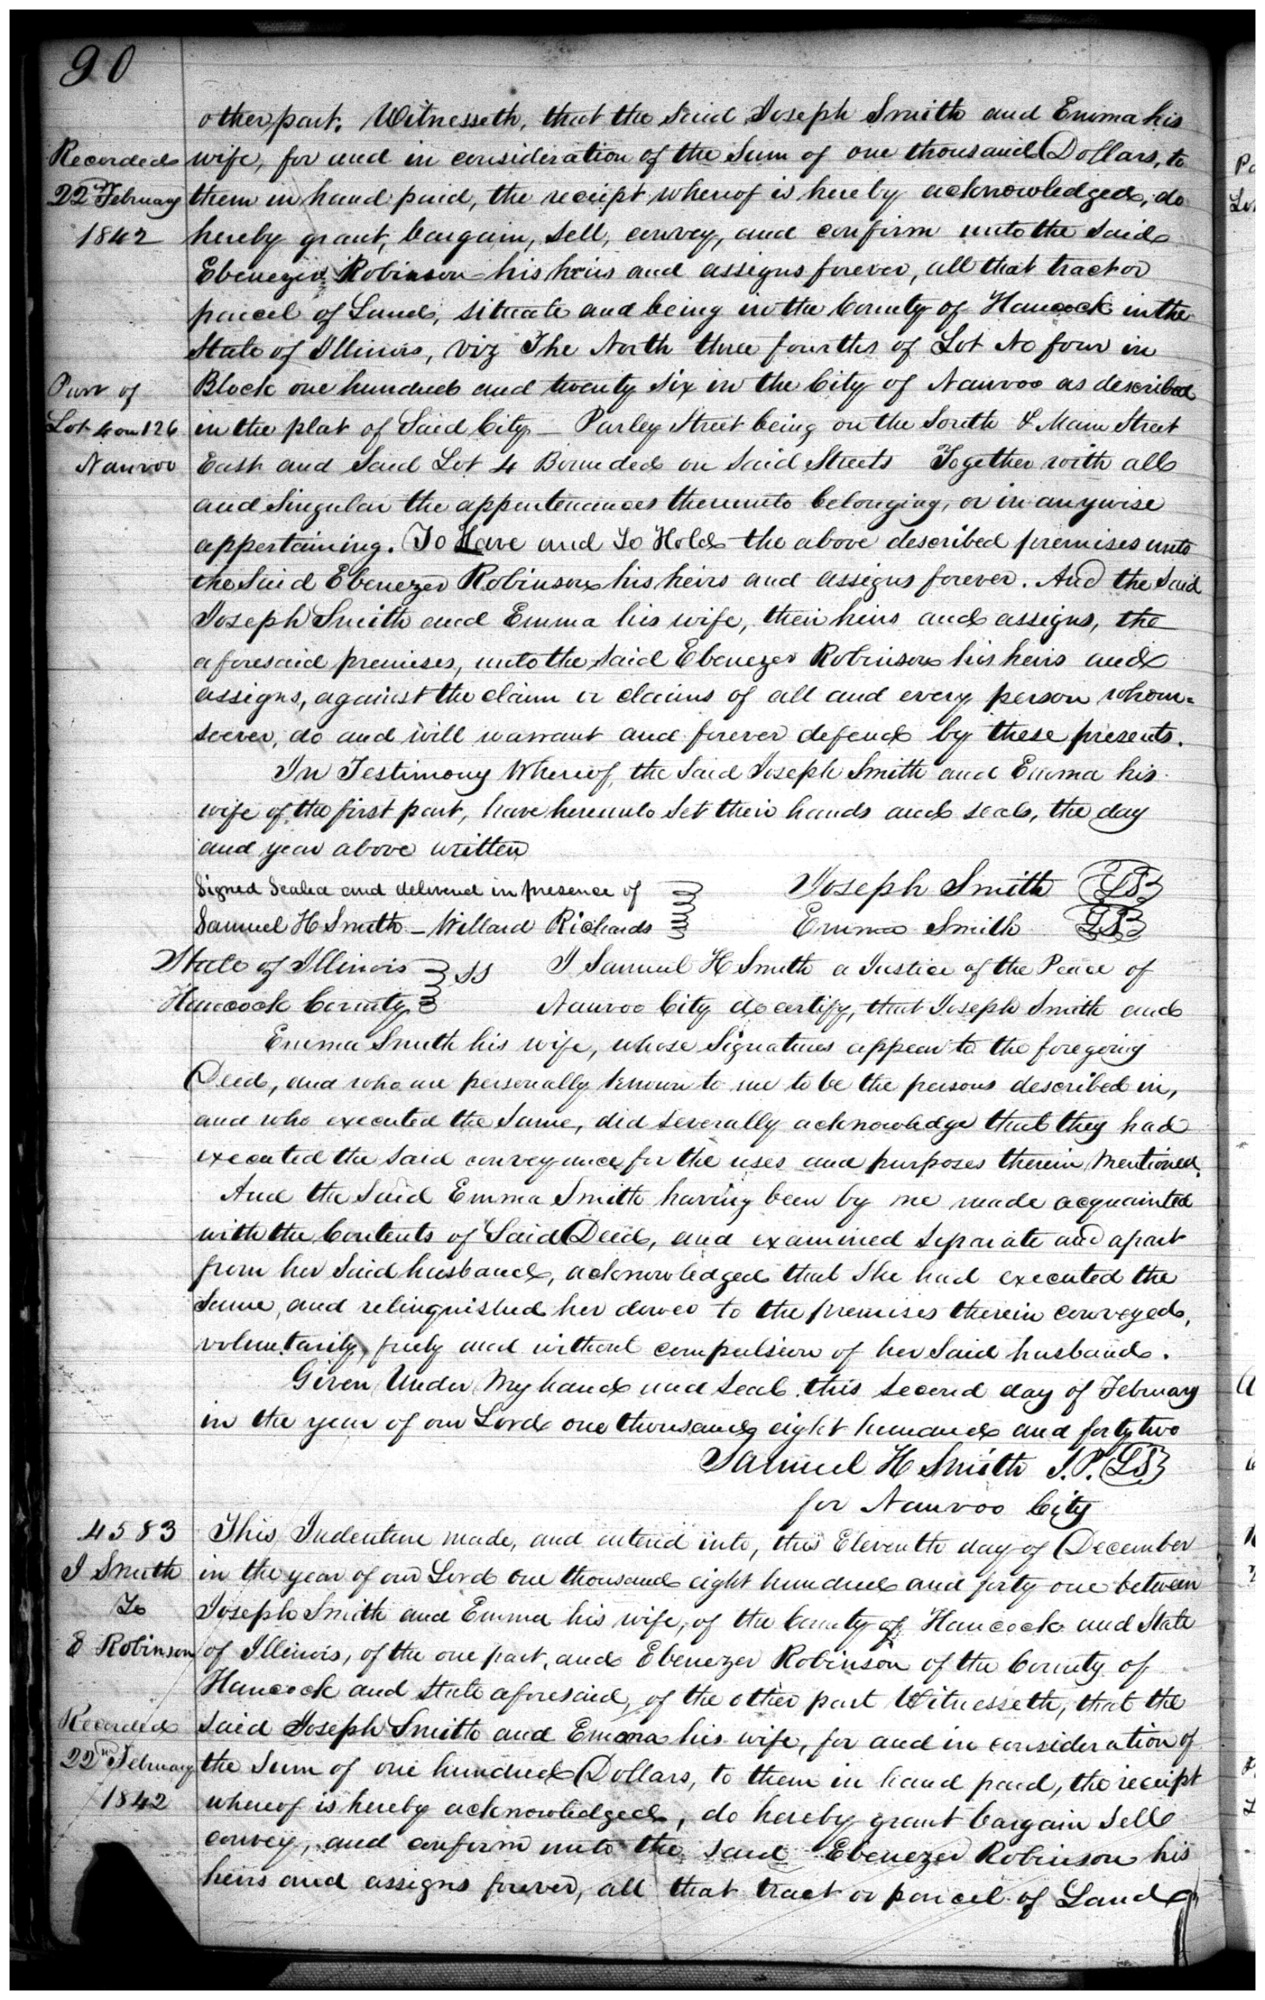 90
other part. Witnesseth, that the said Joseph Smith and Emma his
Recorded
wife, for and in consideration of the Sum of one thousand Dollars, to
22nd February
them in hand paid, the receipt whereof is hereby acknowledged, do
1842
hereby grant, bargain, sell, convey, and confirm unto the said
Ebenezer Robinson his heirs and assigns forever, all that tract or
parcel of Land, situate and being in the County of Hancock in the
State of Illinois, viz The North three fourths of Lot No four in
Part of
Block one hundred and twenty six in the City of Nauvoo as described
Lot 4 on 126
in the plat of Said City - Parley Street being on the South & Main Street
Nauvoo
East and Said Lot 4 Bounded on said Streets Together with all
and Singular the appurtenances thereunto belonging, or in anywise
appertaining. To Have and To Hold the above described premises unto
the Said Ebenezer Robinson his heirs and assigns forever. And the Said
Joseph Smith and Emma his wife, their heirs and assigns, the
aforesaid premises, unto the said Ebenezer Robinson his heirs and
assigns, against the claim or claims of all and every person whom=
soever, do and will warrant and forever defend by these presents.
In Testimony Whereof, the Said Joseph Smith and Emma his
wife of the first part, have hereunto Set their hands and seals, the day
and year above written
Signed Sealed and delivered in presence of Joseph Smith LS
Samuel H Smith - Willard Richards Emma Smith LS
State of Illinois SS I Samuel H Smith a Justice of the Peace of
Hancock County Nauvoo City do certify, that Joseph Smith and
Emma Smith his wife, whose Signatures appear to the foregoing
Deed, and who are personally known to me to be the persons described in,
and who executed the Same, did severally acknowledge that they had
executed the said conveyance for the uses and purposes therein Mentioned.
And the Said Emma Smith having been by me made acquainted
with the Contents of Said Deed, and examined separate and apart
from her Said husband, acknowledged that She had executed the
Same, and relinquished her dower to the premises therein conveyed,
voluntarily, freely and without compulsion of her Said husband.
Given Under My hand and Seal this second day of February
in the year of our Lord one thousand eight hundred and forty two
Samuel H Smith J.P. LS
for Nauvoo City
4583
This Indenture made, and entered into, this Eleventh day of December
J Smith
in the year of our Lord one thousand eight hundred and forty one between
To
Joseph Smith and Emma his wife, of the County of Hancock and State
E Robinson
of Illinois, of the one part, and Ebenezer Robinson of the County of
Hancock and State aforesaid, of the other part Witnesseth, that the
Recorded
said Joseph Smith and Emma his wife, for and in consideration of
22nd February
the Sum of one hundred Dollars, to them in hand paid, the receipt
1842
whereof is hereby acknowledged, do hereby grant bargain Sell
convey, and confirm unto the said Ebenezer Robinson his
heirs and assigns forever, all that tract or parcel of Land